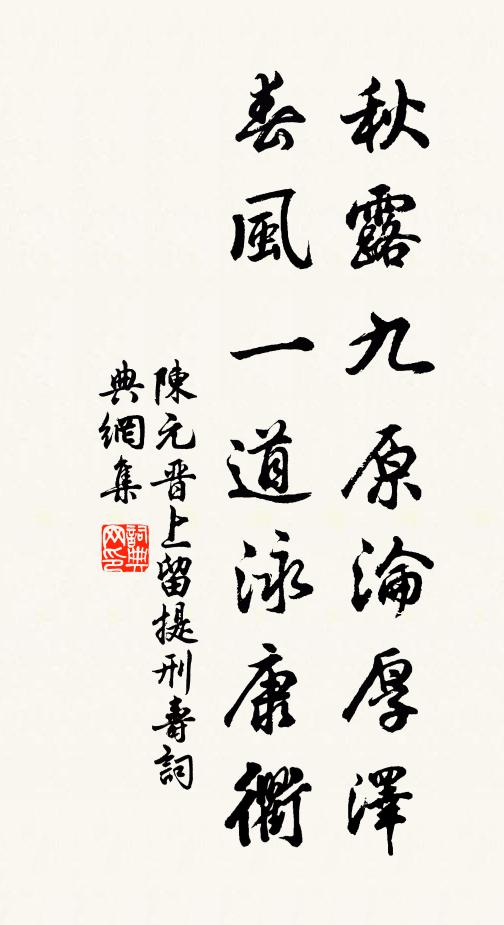 秋露九原淪厚澤
春風一道泳康衢
陳元晋上留提刑壽詞
典網集
詞典
网印